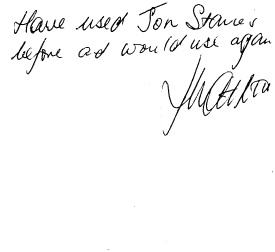 Have used Jon Stanies
before ad would use again